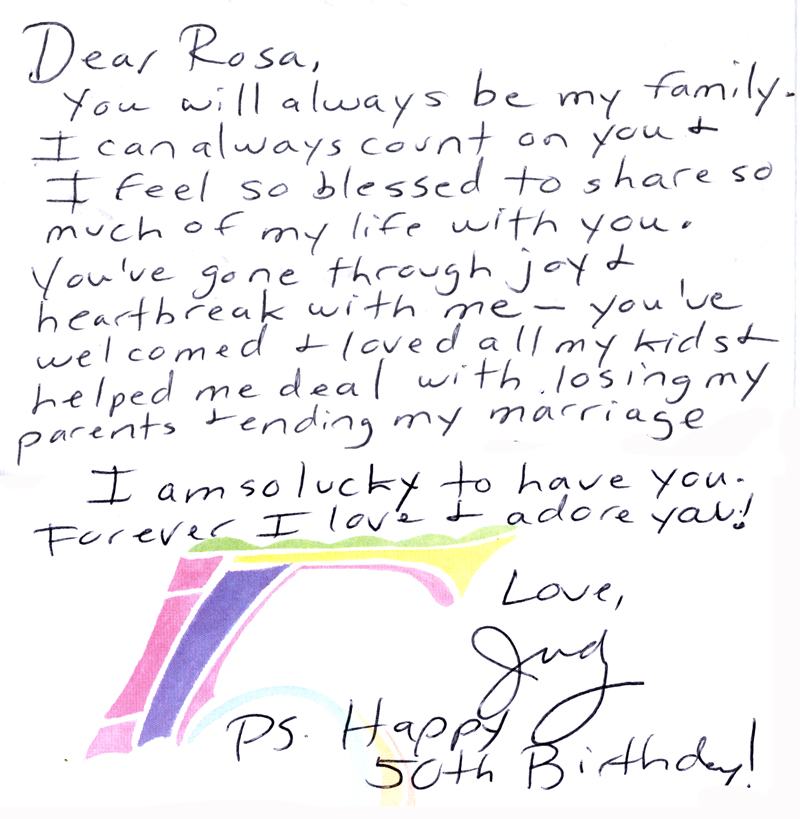 Dear Rosa,
You will always be my family.
I can always count on you &
I feel so blessed to share so
much of my life with you.
You've gone through joy &
heartbreak with me — you've
welcomed & loved all my kids &
helped me deal with losing my
parents & ending my marriage
I am so lucky to have you.
Forever I love & adore you!
Love,
Judy
PS. Happy
50th Birthday!